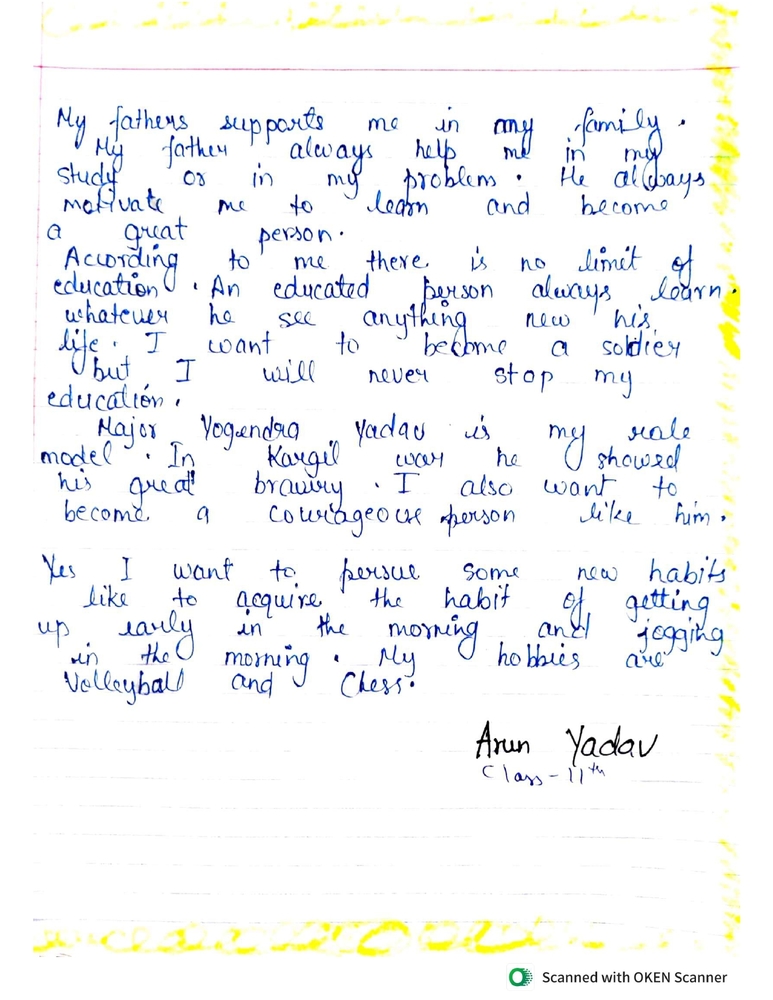 My fathers supports me in my family.
My father always help me in my
study or in my problem. He always
motivate me to learn and become
a great person.
According to me there is no limit of
education. An educated person always learn.
whatever he see anything new his
life. I want to become a soldier
but I will never stop my
education.
Major Yogendra Yadav is my role
model. In Kargil war he showed
his great bravery. I also want to
become a courageous person like him.
Yes I want to persue some new habits
like to acquire the habit of getting
up early in the morning and jogging
in the morning. My hobbies are
Volleyball and Chess.
Arun Yadav
Class-11th
Scanned with OKEN Scanner